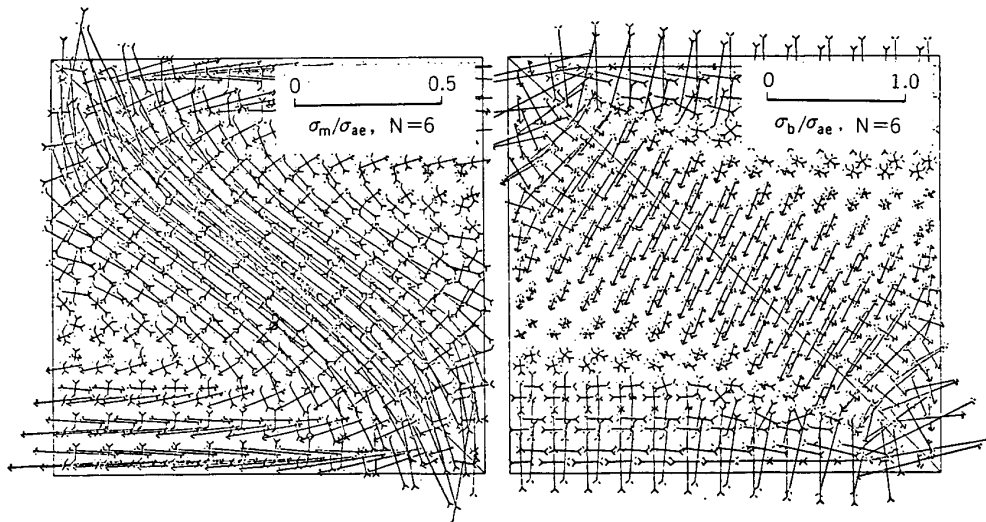 0 0.5
σm/σae, N=6
0 1.0
σb/σae, N=6